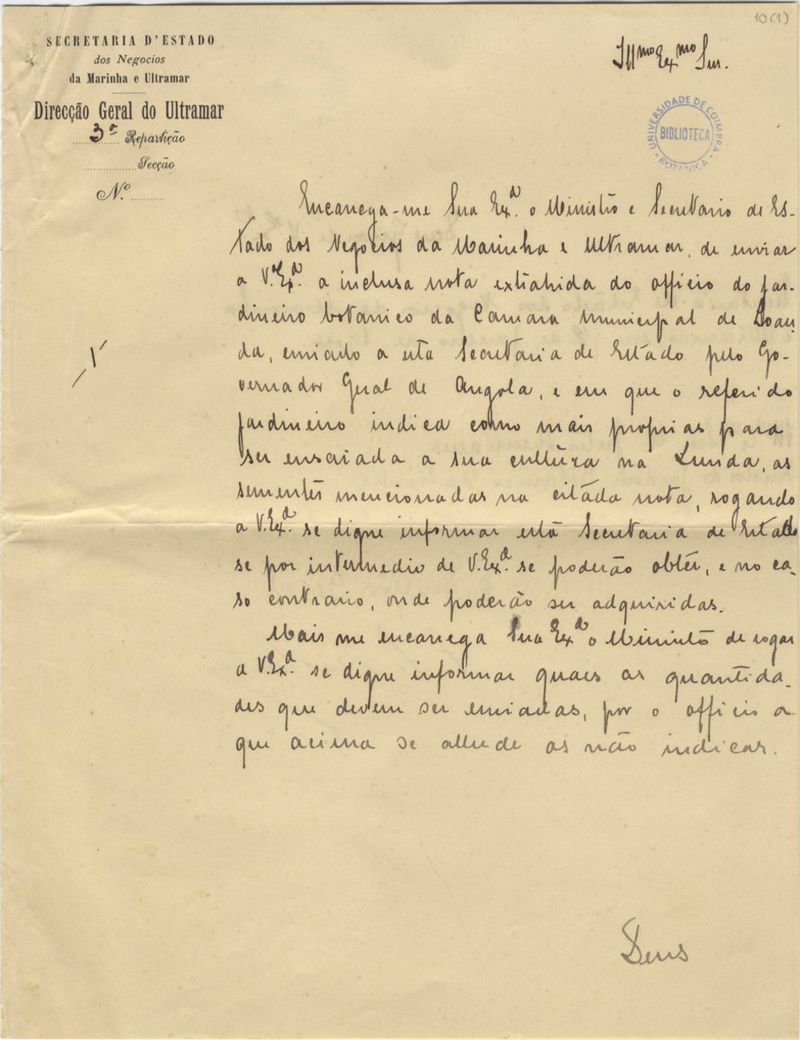 10(1)
SECRETARIA D'ESTADO
dos Negocios
da Marinha e Ultramar
Direcção Geral do Ultramar
3ª Repartição
Secção
N.º
Illmo Exmo Snr.
UNIVERSIDADE DE COIMBRA
BIBLIOTECA
BOTANICA
Encarrega-me Sua Exª. o Ministro e Secretario de Es-
tado dos Negocios da Marinha e Ultramar, de enviar
a V. Exª. a inclusa nota extrahida do officio do jar-
dineiro botanico da Camara Municipal de Loan-
da, enviado a esta Secretaria de Estado pelo Go-
vernador Geral de Angola, e em que o referido
jardineiro indica como mais proprias para
ser ensaiada a sua cultura na Lunda, as
sementes mencionadas na citada nota, rogando
a V. Exª. se digne informar esta Secretaria de Estado
se por intermedio de V. Exª. se poderão obter, e no ca-
so contrario, onde poderão ser adquiridas.
Mais me encarrega Sua Exª o Ministro de rogar
a V. Exª. se digne informar quaes as quantida-
des que devem ser enviadas, por o officio a
que acima se allude as não indicar.
Deus